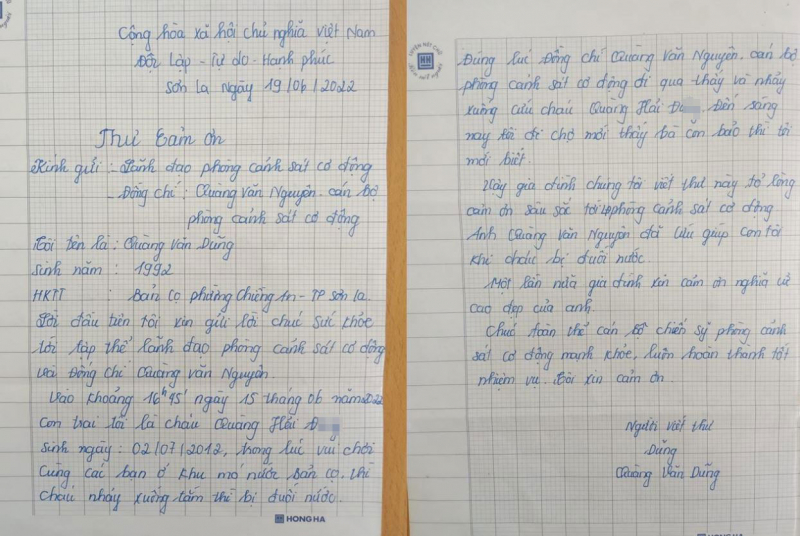 Cộng hòa xã hội chủ nghĩa việt Nam
Độc Lập - Tự do - Hạnh phúc
Sơn la Ngày 19/06/2022
Thư Cảm ơn
Kính gửi : Lãnh đạo phòng cảnh sát cơ động
Đồng chí : Quàng Văn Nguyên. cán bộ
phòng cảnh sát cơ động
Tôi tên là : Quàng Văn Dũng
Sinh năm : 1992
HKTT : Bản Cọ phường Chiềng An - TP Sơn la.
Lời đầu tiên tôi xin gửi lời chúc sức khỏe
tới tập thể lãnh đạo phòng cảnh sát cơ động
và Đồng chí Quàng Văn Nguyên.
Vào khoảng 16h45' ngày 15 tháng 06 năm 2022
Con trai tôi là cháu Quàng Hải Đ
Sinh ngày : 02/07/2012, trong lúc vui chơi
Cùng các bạn ở khu mó nước Bản cọ, thì
Cháu nhảy xuống tắm thì bị đuối nước.
HONG HA
Đúng lúc Đồng chí Quàng Văn Nguyên. cán bộ
phòng cảnh sát cơ động đi qua thấy và nhảy
xuống cứu cháu Quàng Hải Đ Đến sáng
nay tôi đi chợ mới thấy bà con bảo thì tôi
mới biết.
Nay gia đình chúng tôi viết thư này tỏ lòng
cảm ơn sâu sắc tới phòng cảnh sát cơ động
Anh Quàng Văn Nguyên đã cứu giúp con tôi
khi cháu bị đuối nước.
Một lần nữa gia đình xin cảm ơn nghĩa cử
cao đẹp của anh.
Chúc toàn thể cán bộ chiến sỹ phòng cảnh
sát cơ động mạnh khỏe, luôn hoàn thành tốt
nhiệm vụ. Tôi xin cảm ơn.
Người viết thư
Dũng
Quàng Văn Dũng